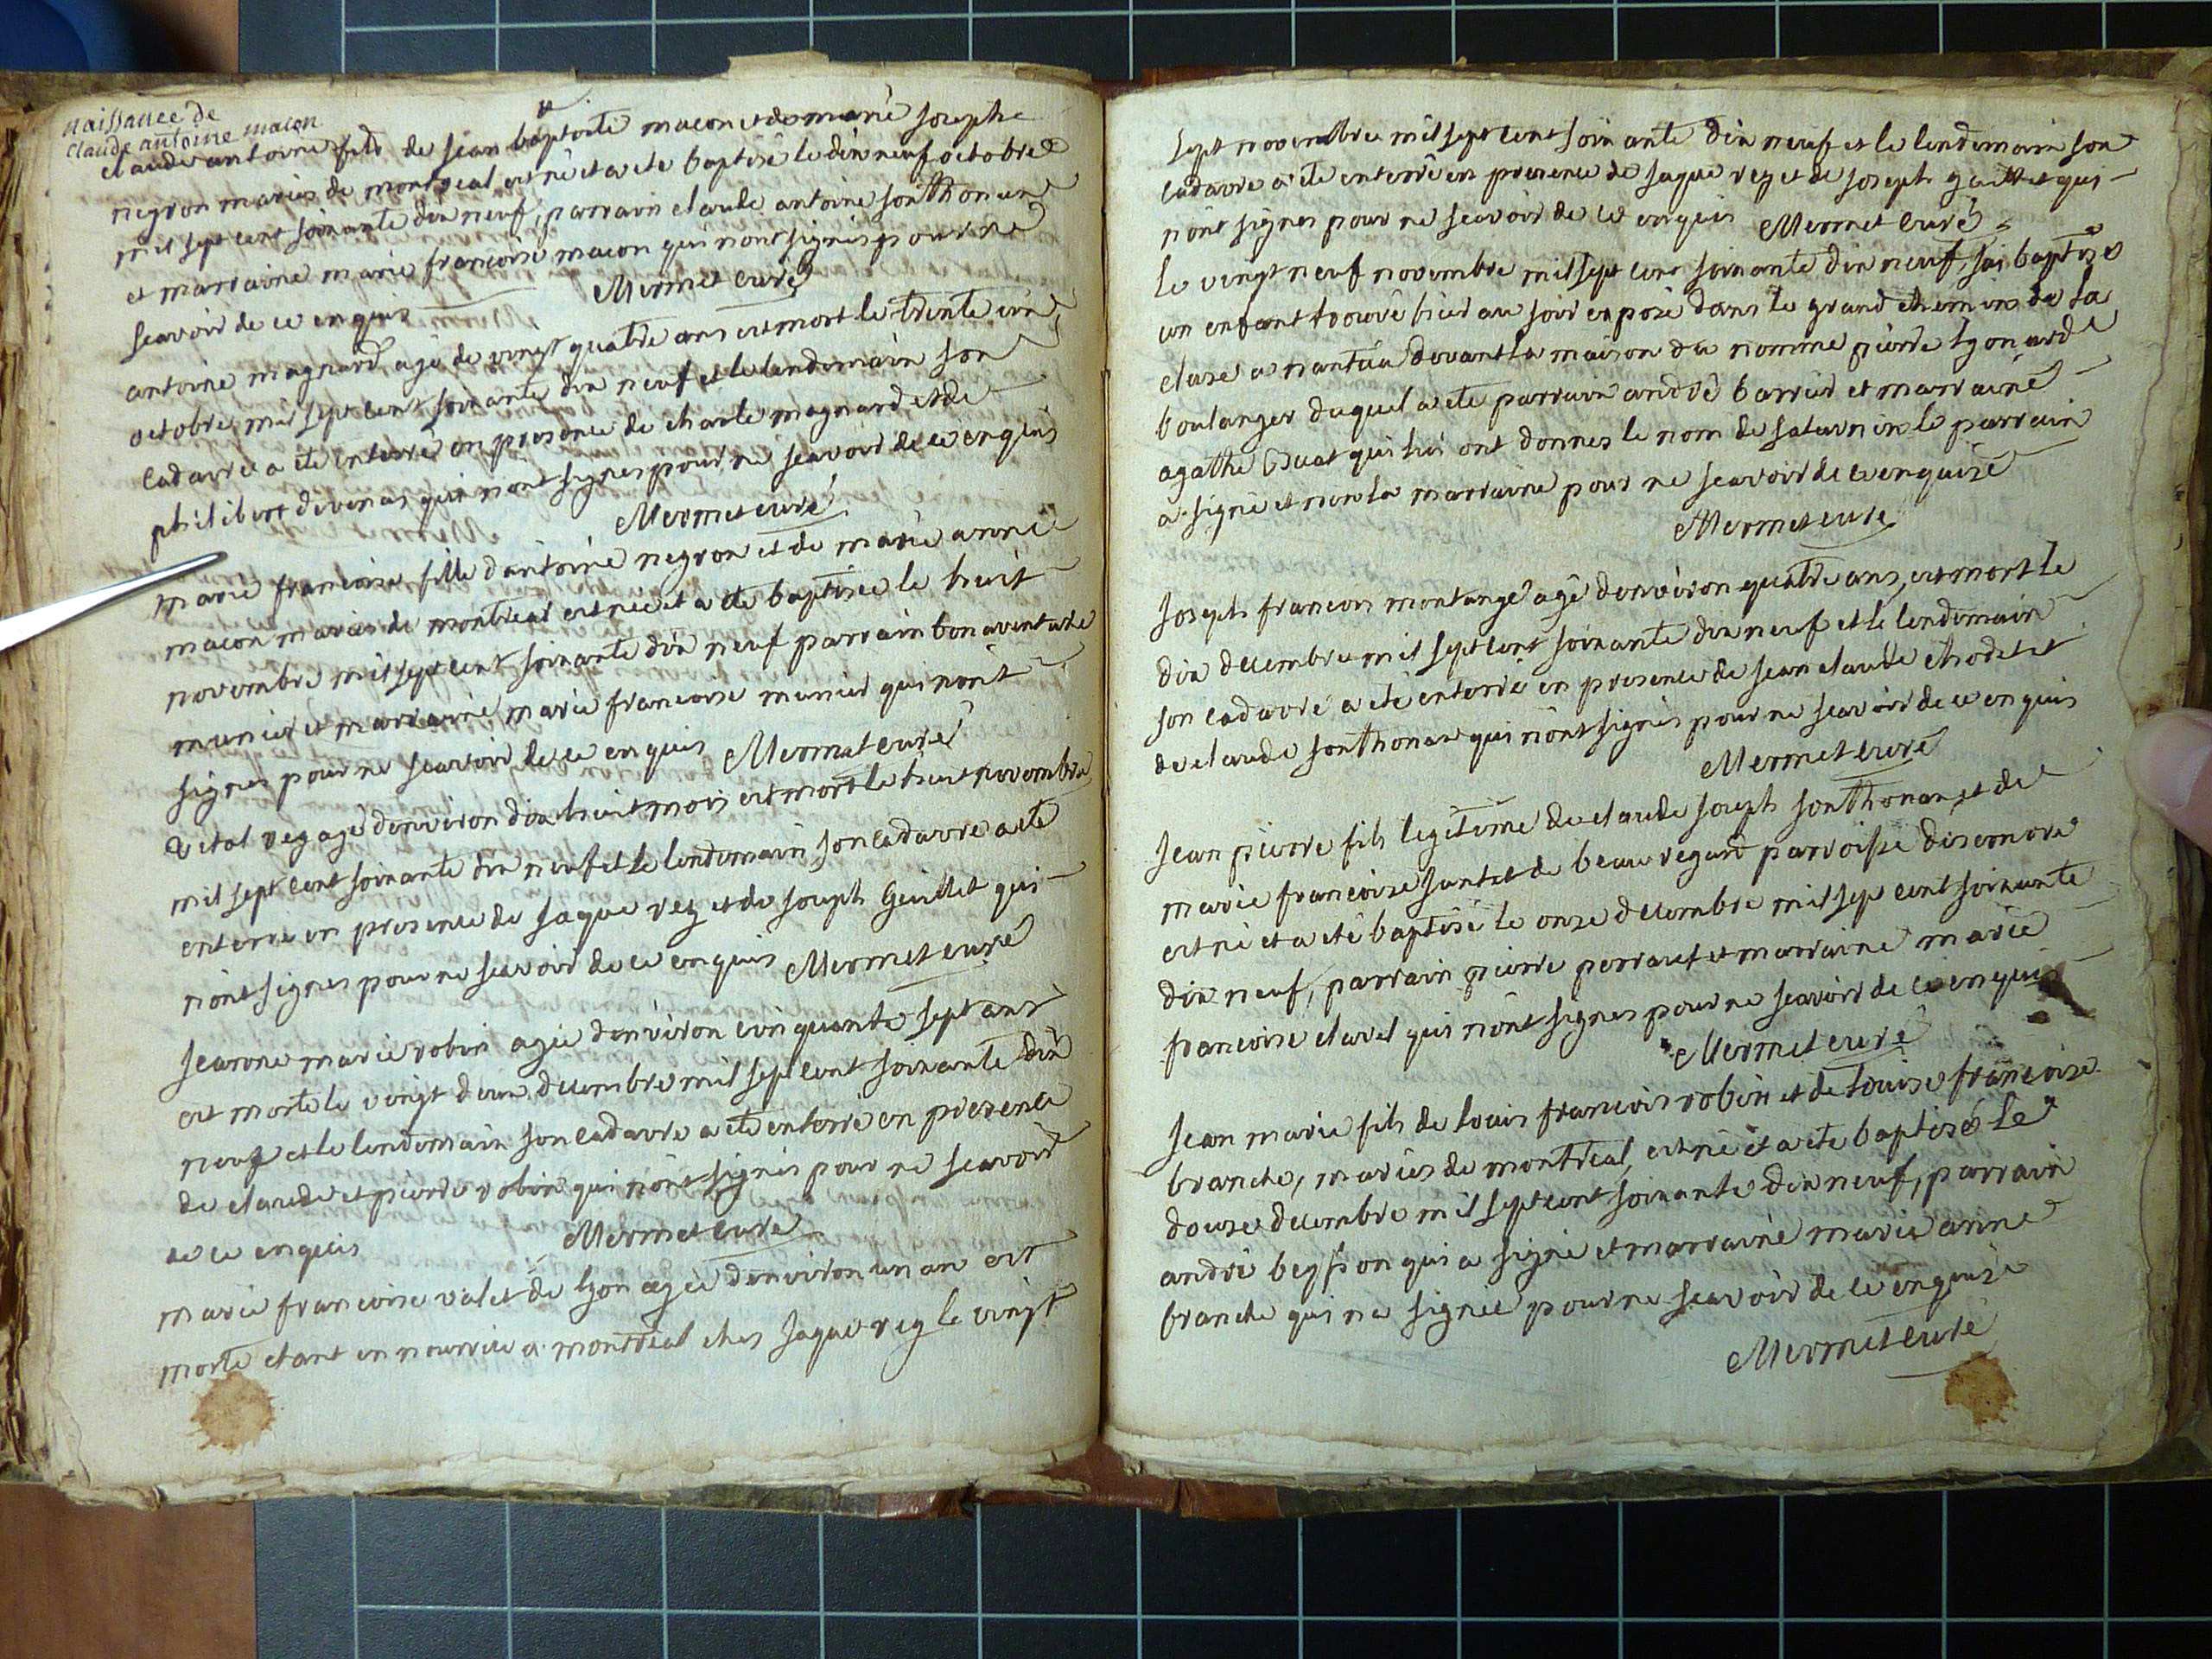 naissance de
claude antoine macon
claude antoine fils de jean baptiste macon et de marie josephe
negron mariés de montreal est né et a eté baptisé le dix neuf octobre
mil sept cent soixante dix neuf, parrain claude antoine sonthonax
et marraine marie francoise macon qui nont signés pour ne
scavoir de ce enquis Mermet curé
antoine magnard agé de vingt quatre ans est mort le trente un
octobre mil sept cent soixante dix neuf et le lendemain son
cadavre a eté enterré en presence de charle magnard et de
philibert divonas qui nont signes pour ne scavoir de ce enquis
Mermet curé
marie francoise fille dantoine negron et de marie anne
macon mariés de montreal est nee et a eté baptisée le huit
novembre mil sept cent soixante dix neuf parrain bonaventure
munier et marraine marie francoise munier qui nont
signes pour ne scavoir de ce enquis Mermet curé
vital rey agé denviron dix huit mois est mort le huit novembre
mil sept cent soixante dix neuf et le lendemain son cadavre a eté
enterré en presence de jaque rey et de joseph Guillet qui
nont signes pour ne scavoir de ce enquis Mermet curé
jeanne marie robin agée denviron cinquante sept ans
est morte le vingt deux decembre mil sept cent soixante dix
neuf et le lendemain son cadavre a eté enterré en presence
de claude et pierre robin qui nont signés pour ne scavoir
de ce enquis Mermet curé
marie francoise valet de lyon agée denviron un an est
morte etant en nourrice a montreal ches jaque rey le vingt
sept novembre mil sept cent soixante dix neuf et le lendemain son
cadavre a eté enterré en presence de jaque rey et de joseph qui
nont signes pour ne scavoir de ce enquis Mermet curé
le vingt neuf novembre mil sept cent soixante dix neuf, jai baptisé
un enfant trouvé hier au soir exposé dans le grand chemin de la
cluse a nantua devant la maison du nomme pierre lyonard
boulanger duquel a eté parrain andré barrier et marraine
agathe Buat qui lui ont donnes le nom de saturnin le parrain
a signé et non la marraine pour ne scavoir de ce enquise
Mermet curé
joseph francois montange agé denviron quatre ans, est mort le
dix decembre mil sept cent soixante dix neuf et le lendemain
son cadavre a eté enterré en presence de jean claude chodet et
de claude sonthonax qui nont signés pour ne scavoir de ce enquis
Mermet curé
jean pierre fils legitime de claude joseph sonthonax et de
marie francoise de beau regard parroisse disernore
est né et a eté baptisé le onze decembre mil sept cent soixante
dix neuf, parrain pierre perraut et marraine marie
francoise clavel qui nont signes pour ne scavoir de ce enquis
Mermet curé
jean marie fils de louis francois robin et de louise francoise
branche, mariés de montreal, est né et a eté baptisé le
douze decembre mil sept cent soixante dix neuf, parrain
andré beysson qui a signé et marraine marie anne
branche qui na signée pour ne scavoir de ce enquise
Mermet curé